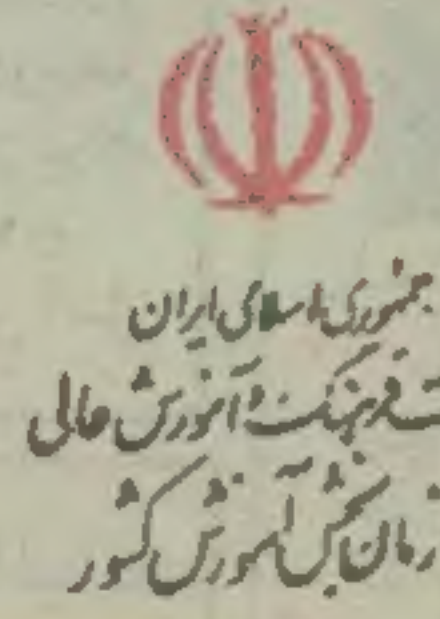 جمهوری اسلامی ایران
ت فرهنگ و آموزش عالی
زمان سنجش آموزش کشور